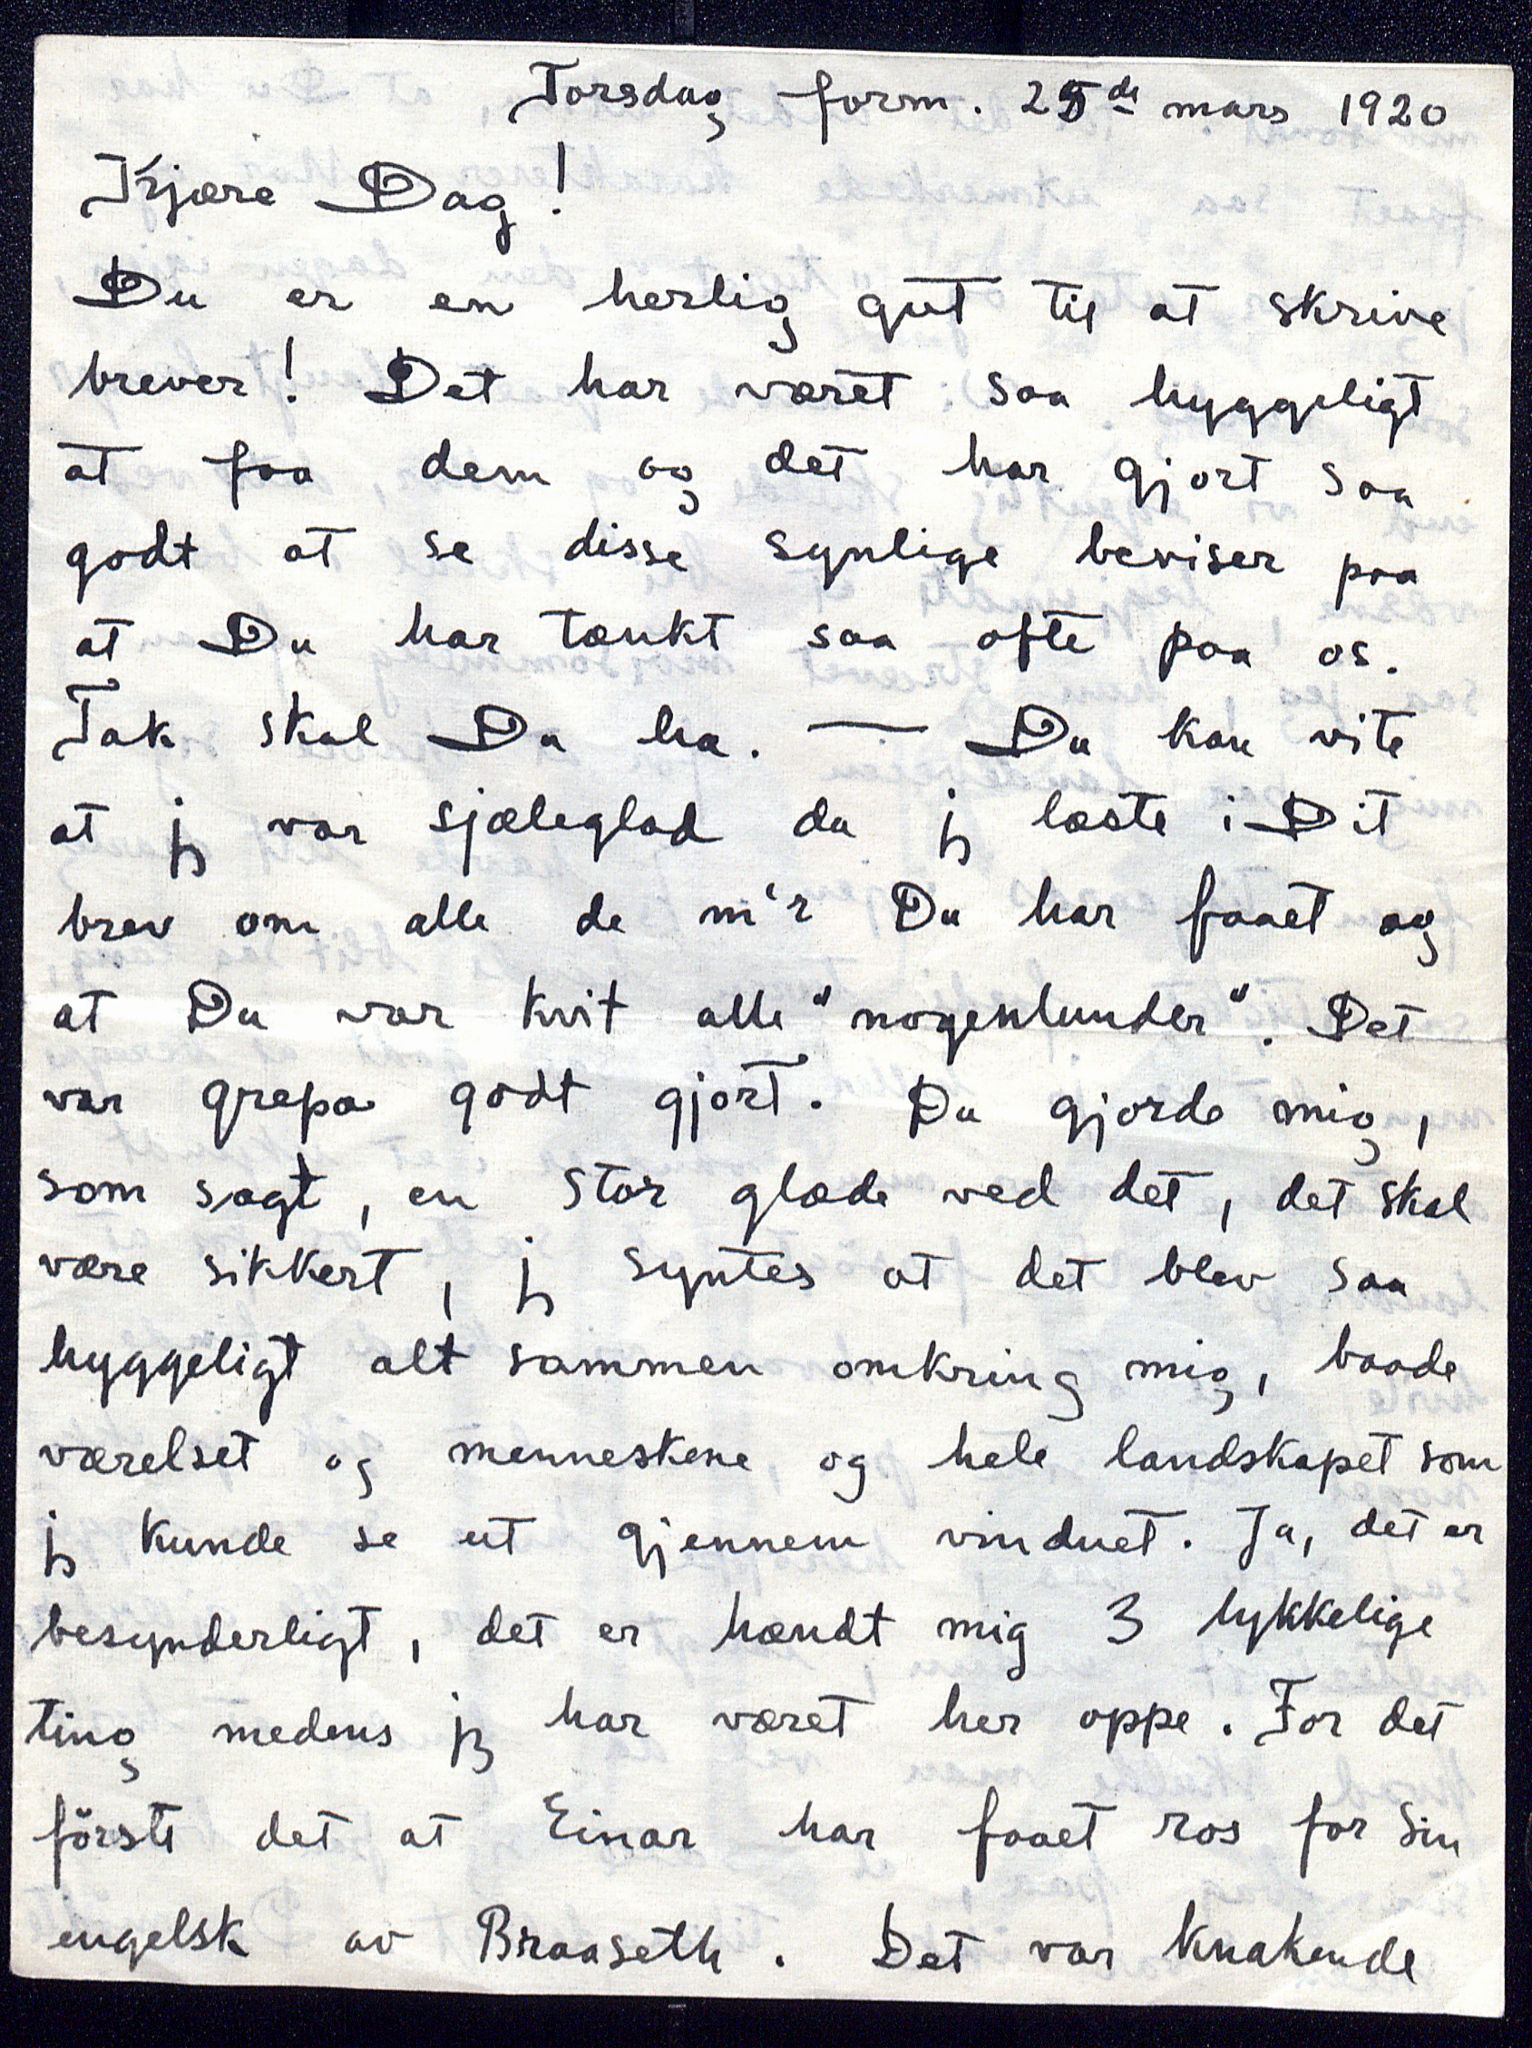 Torsdag form. 25de mars 1920
Kjære Dag!
Du er en herlig gut til at skrive
brever! Det har været saa hyggeligt
at faa dem og det har gjort saa
godt at se disse synlige beviser paa
at Du har tænkt saa ofte paa os.
Tak skal Du ha. — Du kan vite
at jeg var sjæleglad da jeg læste i Dit
brev om alle de m'r Du har faaet og
at Du var kvit alle "nogenlunder". Det
var grepa godt gjort. Du gjorde mig,
som sagt, en stor glæde ved det, det skal
være sikkert, jeg syntes at det blev saa
hyggeligt alt sammen omkring mig, baade
værelset og menneskene, og hele landskapet som
jeg kunde se ut gjennem vinduet. Ja, det er
besynderligt, det er hændt mig 3 lykkelige
ting medens jeg har været her oppe. For det
förste det at Einar har faaet ros for sin
engelsk av Braaseth. Det var knakende